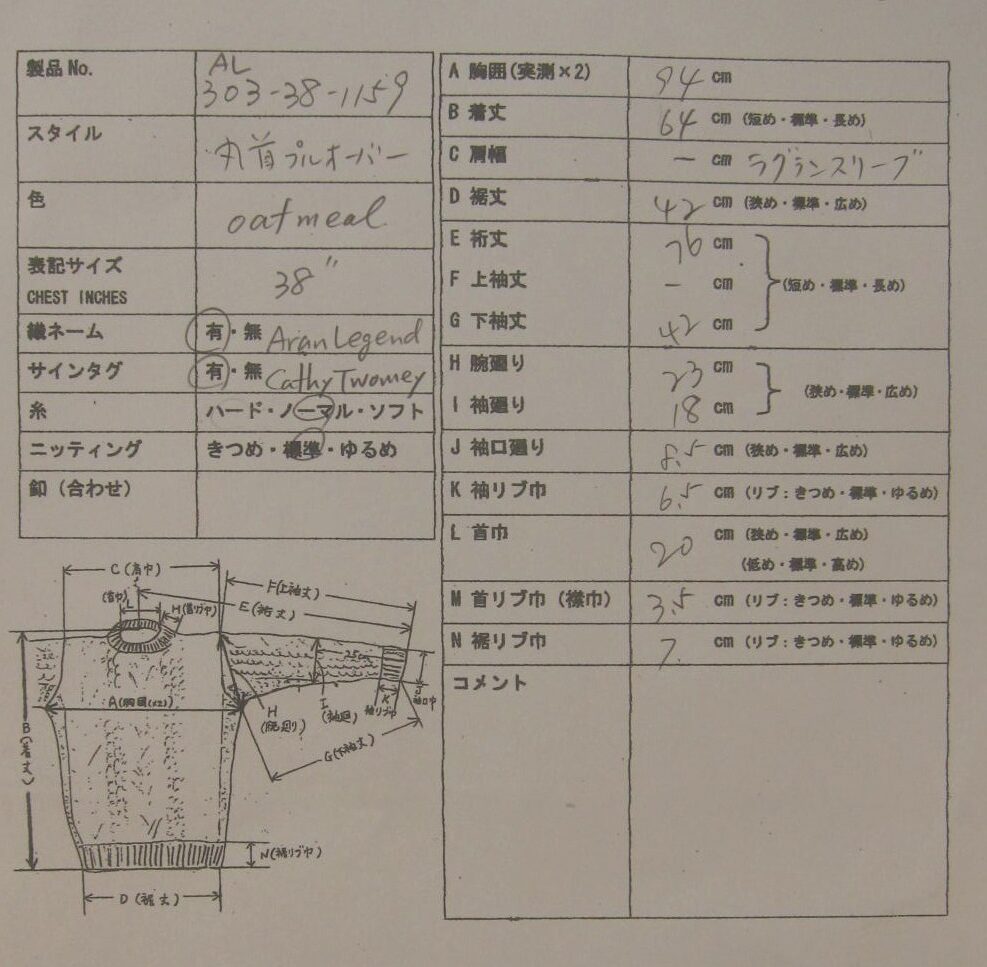 製品No.
AL
303-38-1159
スタイル
丸首プルオーバー
色
oatmeal
表記サイズ
CHEST INCHES
38"
織ネーム
有・無 Aran Legend
サインタグ
有・無 Cathy Twomey
糸
ハード・ノーマル・ソフト
ニッティング
きつめ・標準・ゆるめ
釦（合わせ）
A 胸囲(実測×2)
94 cm
B 着丈
64 cm (短め・標準・長め)
C 肩幅
― cm ラグランスリーブ
D 裾丈
42 cm (狭め・標準・広め)
E 裄丈
76 cm
F 上袖丈
― cm (短め・標準・長め)
G 下袖丈
42 cm
H 腕廻り
23 cm
(狭め・標準・広め)
I 袖廻り
18 cm
J 袖口廻り
8.5 cm (狭め・標準・広め)
K 袖リブ巾
6.5 cm (リブ：きつめ・標準・ゆるめ)
L 首巾
20 cm (狭め・標準・広め)
(低め・標準・高め)
M 首リブ巾（襟巾）
3.5 cm (リブ：きつめ・標準・ゆるめ)
N 裾リブ巾
7. cm (リブ：きつめ・標準・ゆるめ)
コメント
C(肩巾)
F(上袖丈)
E(裄丈)
(首巾)
L
M(首リブ巾)
A(胸囲(×2))
B(着丈)
H
(腕廻り)
I
(袖廻)
K
袖リブ巾
袖口巾
G(下袖丈)
N(裾リブ巾)
D(裾丈)